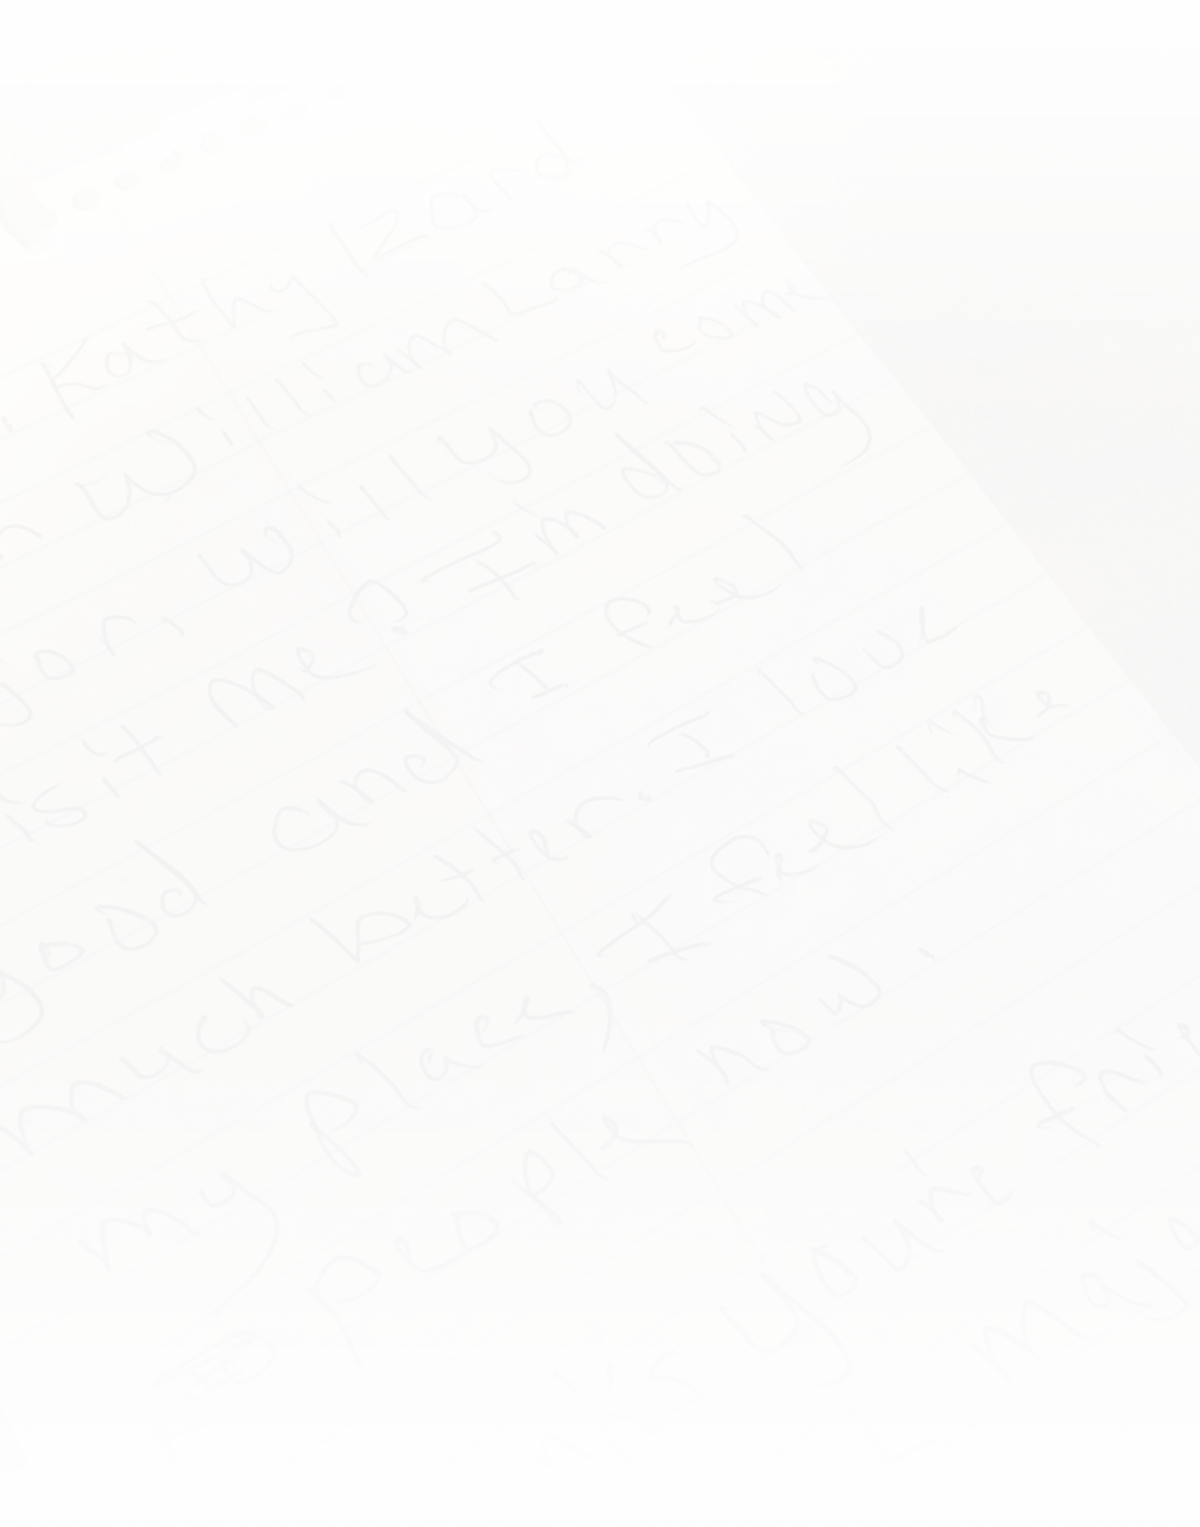 Kathy Izard
William Larry
or, will you come
isit me? I'm doing
good and I feel
much better. I love
my place, I feel like
people now.
your